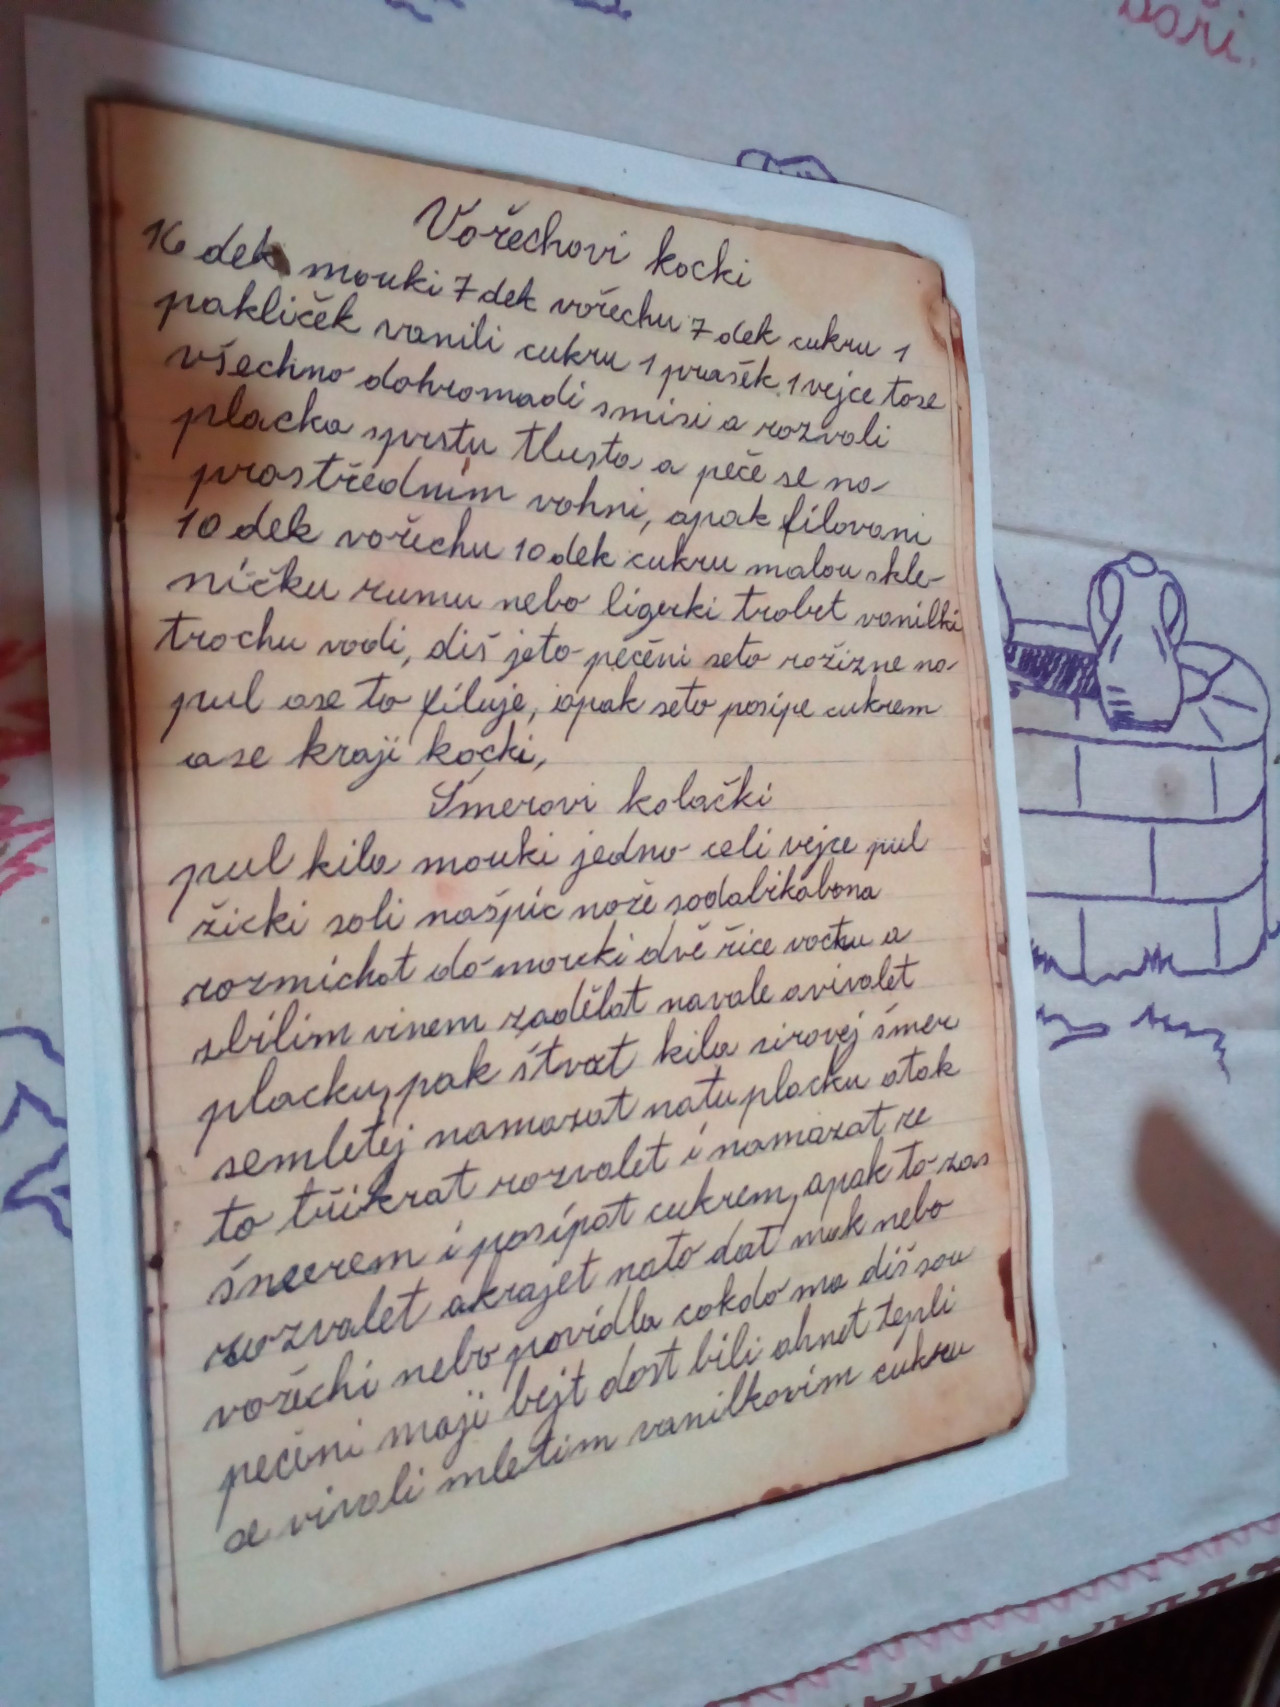 vaři.
Vořechovi kocki
16 dek mouki 7 dek vořechu 7 dek cukru 1
pakliček vanili cukru 1 prašék 1 vejce tose
všechno dohromadi smisi a rozvali
placka sprstu tlusta a peče se na
prostředním vohni, apak filovani
10 dek vořechu 10 dek cukru malou skle-
ničku rumu nebo ligerki trobet vanilki
trochu vodi, diš jeto pečeni seto rožizne na
pul ase to filuje, apak seto posipe cukrem
ase kraji kocki,
Šmerovi kolački
pul kila mouki jedno celi vejce pul
žicki soli našpic nože sodabikabona
rozmichat do mouki dvě řice voctu a
sbilim vinem zadělat navale avivalet
placku, pak štvrt kila sirovej šmer
semletej namazat natu placku atak
to třikrat rozvalet i namazat ze
šmerem i posipat cukrem, apak to zas
rozvalet akrajet nato dat mak nebo
vořechi nebo povidla cokdo ma diš sou
pečeni maji bejt dost bili ahnet tepli
se vivali mletim vanilkovim cukru